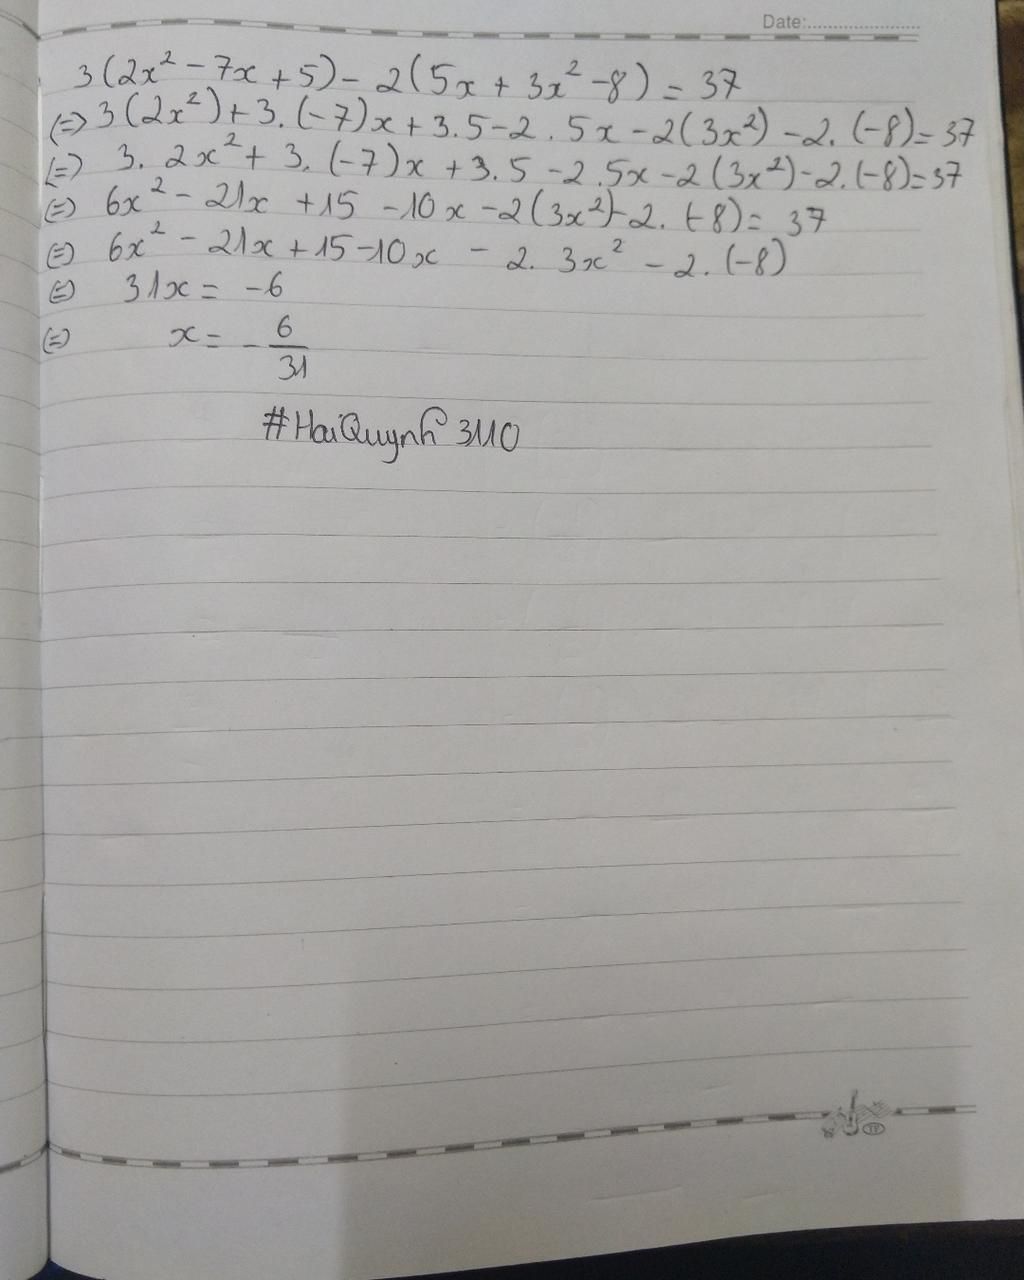 Date:
3(2x² - 7x + 5) - 2(5x + 3x² - 8) = 37
(=) 3(2x²) + 3.(-7)x + 3.5 - 2.5x - 2(3x²) - 2.(-8) = 37
(=) 3.2x² + 3.(-7)x + 3.5 - 2.5x - 2(3x²) - 2.(-8) = 37
(=) 6x² - 21x + 15 - 10x - 2(3x²) - 2.(-8) = 37
(=) 6x² - 21x + 15 - 10x - 2.3x² - 2.(-8)
(=) 31x = -6
(=) x = -6/31
#HaiQuynh 3110
TP